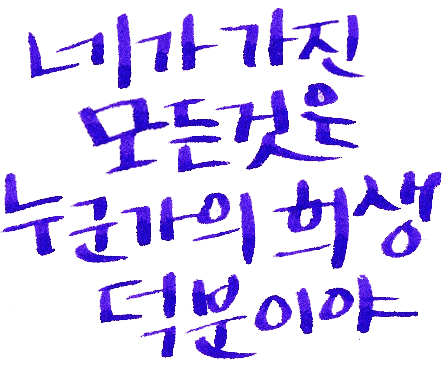 네가 가진
모든것은
누군가의 희생
덕분이야